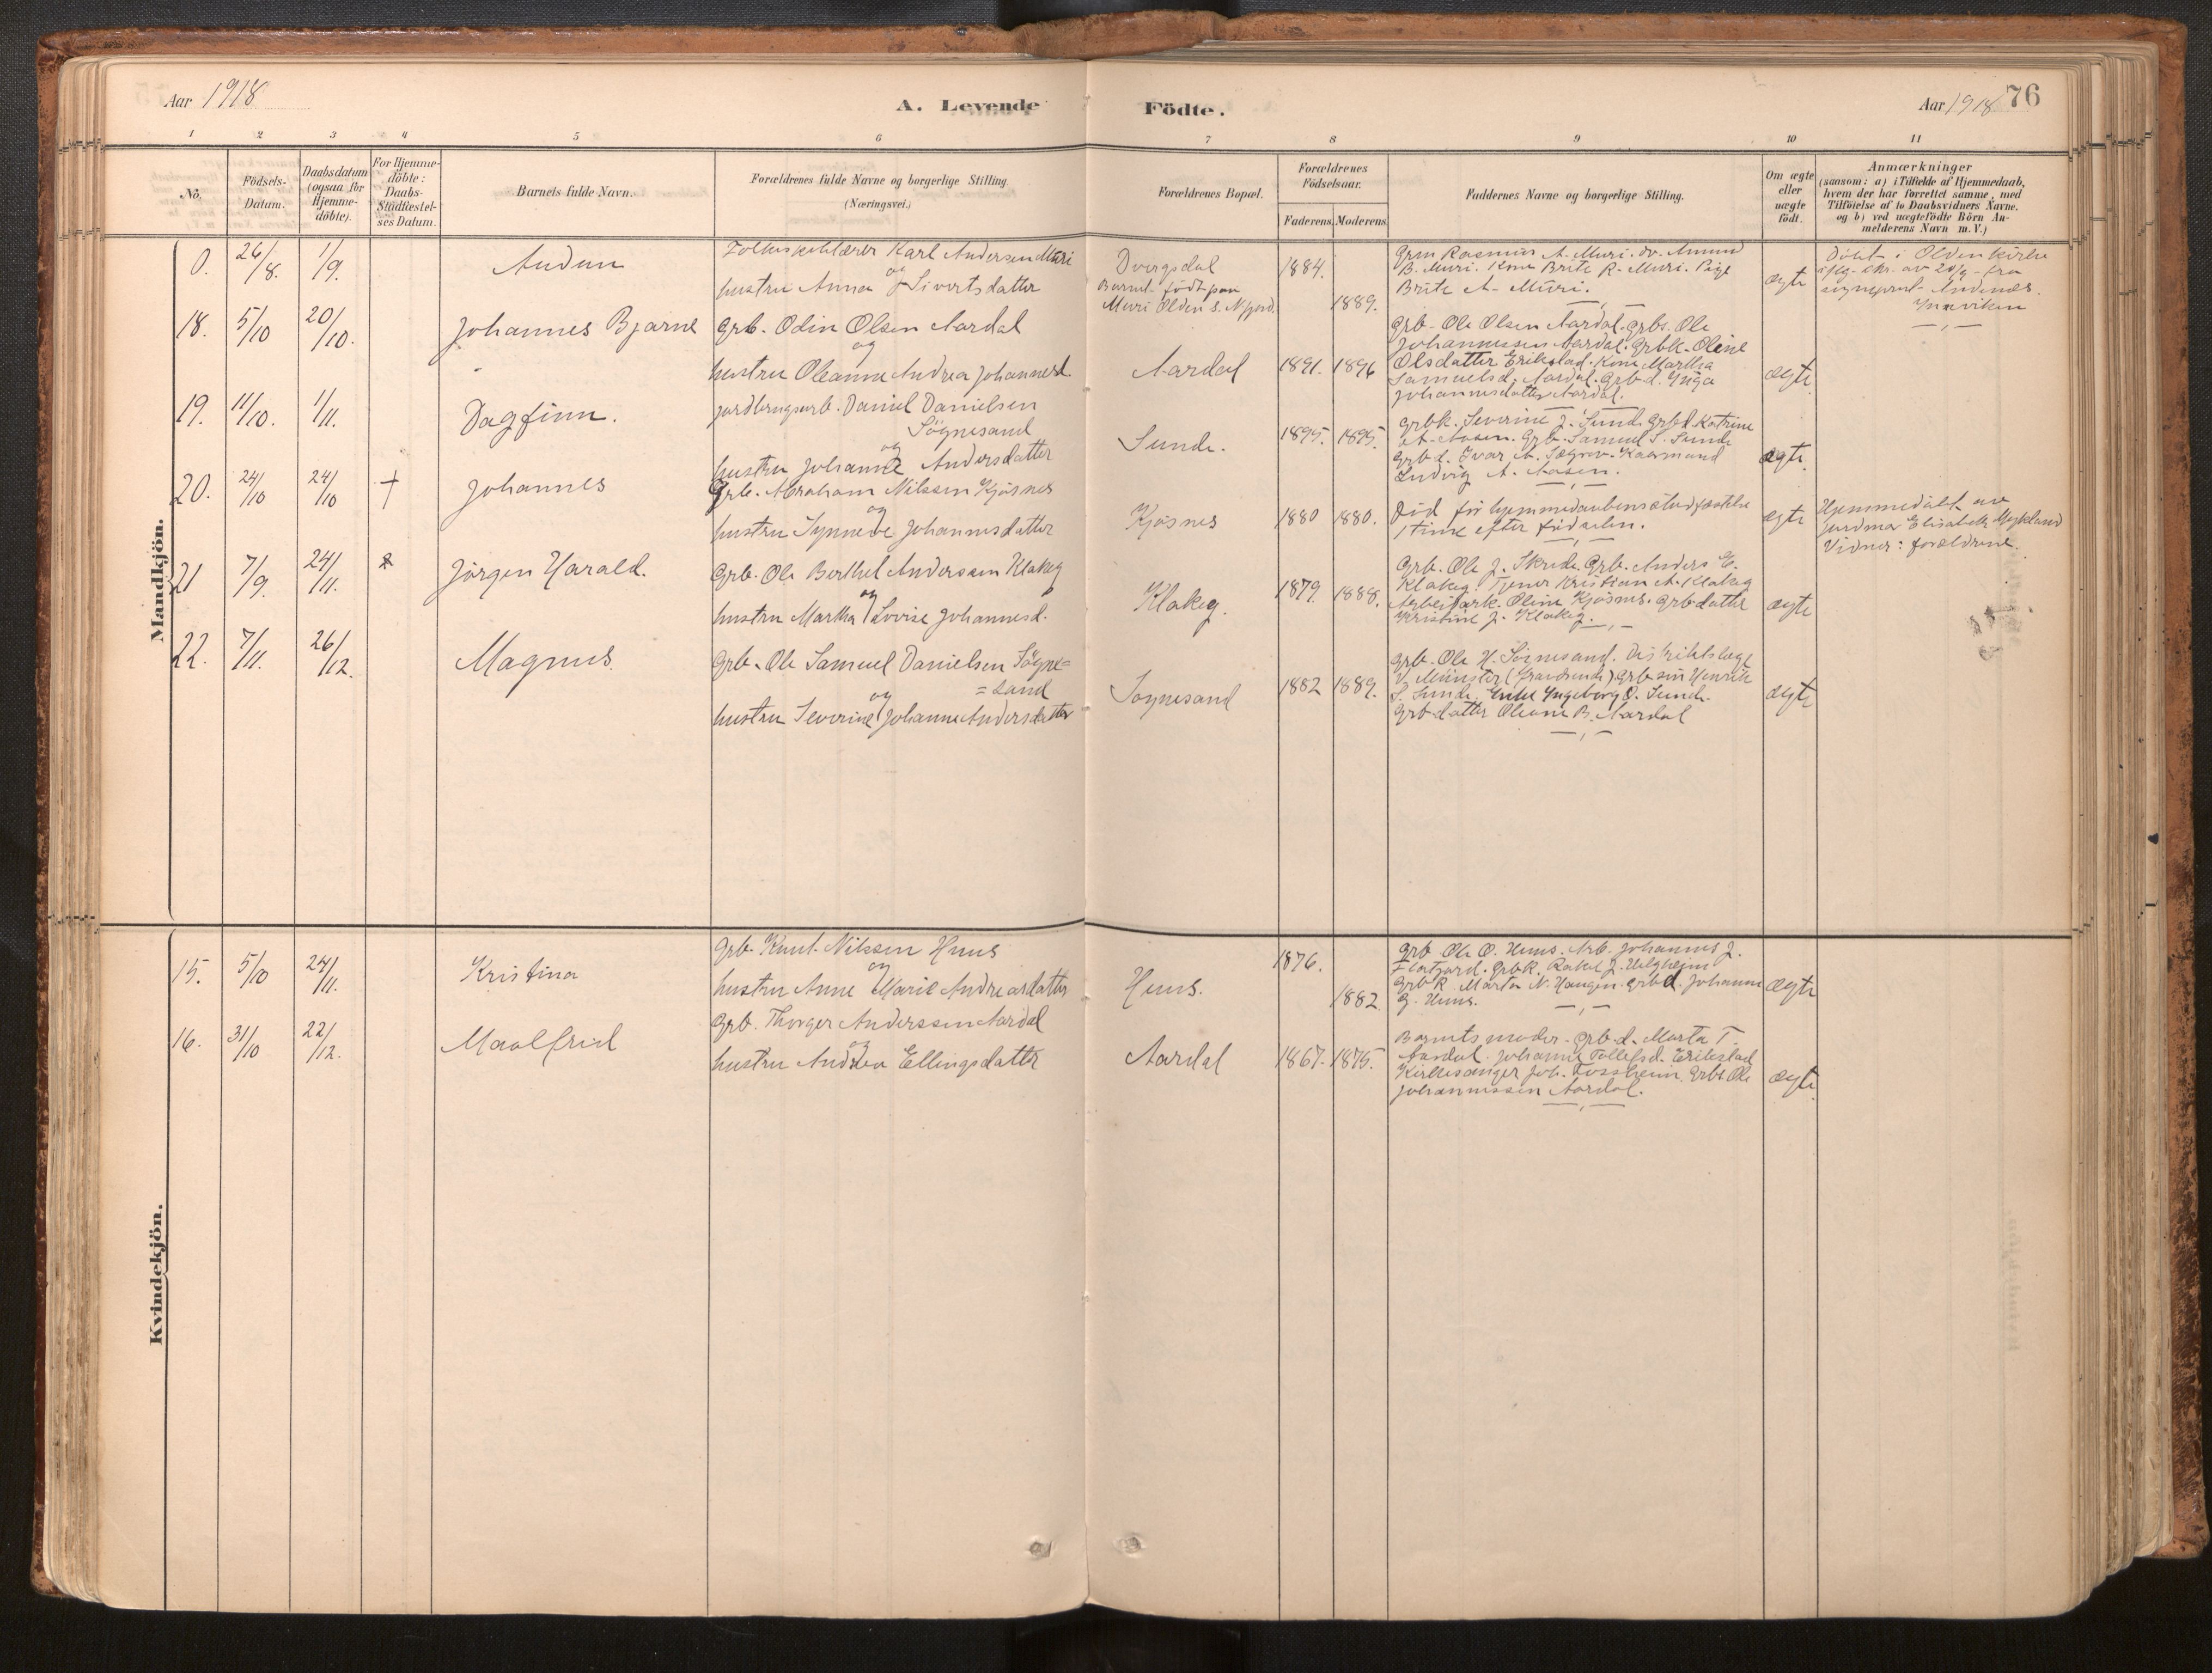 Aar 1918
A. Levende Födte.
Aar 1918 76
1 2 3 4 5 6 7 8 9 10 11
No.
Födsels-Datum.
Daabsdatum (ogsaa för Hjemme-döbte).
For Hjemme-döbte: Daabs-Stadfæstel-ses Datum.
Barnets fulde Navn.
Forældrenes fulde Navne og borgerlige Stilling.
(Næringsvei.)
Forældrenes Bopæl.
Forældrenes Födselsaar.
Faderens. Moderens.
Faddernes Navne og borgerlige Stilling.
Om ægte eller uægte födt.
Anmærkninger
(saasom: a) i Tilfælde af Hjemmedaab,
hvem der har forrettet samme, med
Tilföielse af to Daabsvidners Navne,
og b) ved uægtefödte Börn An-
melderens Navn m. V.)
Mandkjön.
0. 26/8. 1/9. Audun
Folkeskolelærer Karl Andersen Muri
og
hustru Anna Sivertsdatter
Dvergsdal
Barnet født paa
Muri Olden s. N.fjord.
1884. 1889.
Grm Rasmus A. Muri. dr. Amund
B. Muri. Kone Brite R. Muri. Pige
Brite A. Muri.
ægte
Döbt i Olden kirke
ifølg. skr. av 20/9 fra
sogneprest Andenæs.
Innviken
18. 5/10 20/10. Johannes Bjarne
Grb. Odin Olsen Aardal
og
hustru Oleanna Andrea Johannesd.
Aardal 1891. 1896
Grb. Ole Olsen Aardal. Grbs. Ole
Johannessen Aardal. Grbk. Oline
Olsdatter Erikstad. Kone Martha
Samuelsd. Aardal. Grb d. Inga
Johannesdatter Aardal.
ægte
19. 11/10. 1/11. Dagfinn.
Jordbrugsarb. Daniel Danielsen
Søgnesand
og
hustru Johanne Andersdatter
Sunde. 1895. 1895.
Grbk. Severine J. Sunde Grbd. Katrine
A. Aasen. Grb. Samuel S. Sunde
Grb d. Ivar A. Kaarmund
Ludvig A. Aasen.
ægte.
20. 24/10 24/10 † Johannes
Grb. Abraham Nilssen Kjøsnes
og
hustru Synneve Johannesdatter
Kjøsnes 1880 1880.
Død før hjemmedaabens stadfæstelse
1 time efter fødselen.
ægte
Hjemmedøbt av
jordmor Elisabeth Myklund
Vidner: forældrene.
21 7/9. 24/11. * Jørgen Harald.
Grb. Ole Berthel Anderssen Klakeg
og
hustru Martha Lovise Johannesd.
Klakeg. 1879. 1888.
Grb. Ole J. Skrede. Grb. Anders E.
Klakeg. Tjener Kristian A. Klakeg
Arbeidark. Oline Kjøsnes. Grb datter
Kristine J. Klakeg.
ægte
22. 7/11. 26/12. Magnus.
Grb. Ole Samuel Danielsen Søgne=
=sand
og
hustru Severine Johanne Andersdatter
Sognesand 1882 1889.
Grb. Ole H. Sørnesand. Distriktslæge
V. Münster (fraværende) Grb søn Henrik
S. Sunde. Enke Ingeborg O. Sunde.
Grb datter Oleane B. Aardal
ægte
Kvindekjön.
15. 5/10 24/11. Kristina
Grb. Knut Nilssen Huus
og
hustru Anne Marie Andreasdatter
Huus. 1876. 1882
Grb Ole O. Huus. Arb. Johannes J.
Flatjord. Grbk. Rakel J. Helgheim
Grb k Marta N. Haugen. Grb d. Johanne
G. Huus.
ægte
16. 31/10 22/12. Maalfrid
Grb. Thorger Anderssen Aardal
og
hustru Andrea Ellingsdatter
Aardal 1867. 1875.
Barnets moder. Grb.d. Marta T.
Aardal. Johanne Tollefsd. Erikstad
Kirkesanger Joh. Fossheim. Grbs. Ole
Johannessen Aardal.
ægte.